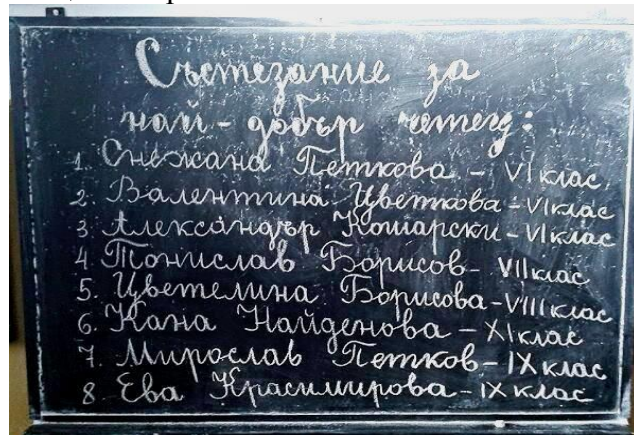 Състезание за
най-добър четец:
1. Снежана Петкова - VI клас
2. Валентина Цветкова - VI клас
3 Александър Кошарски - VI клас
4 Тонислав Борисов - VII клас
5. Цветелина Борисова - VIII клас
6. Жана Найденова - XI клас
7. Мирослав Петков - IX клас
8 Ева Красимирова - IX клас